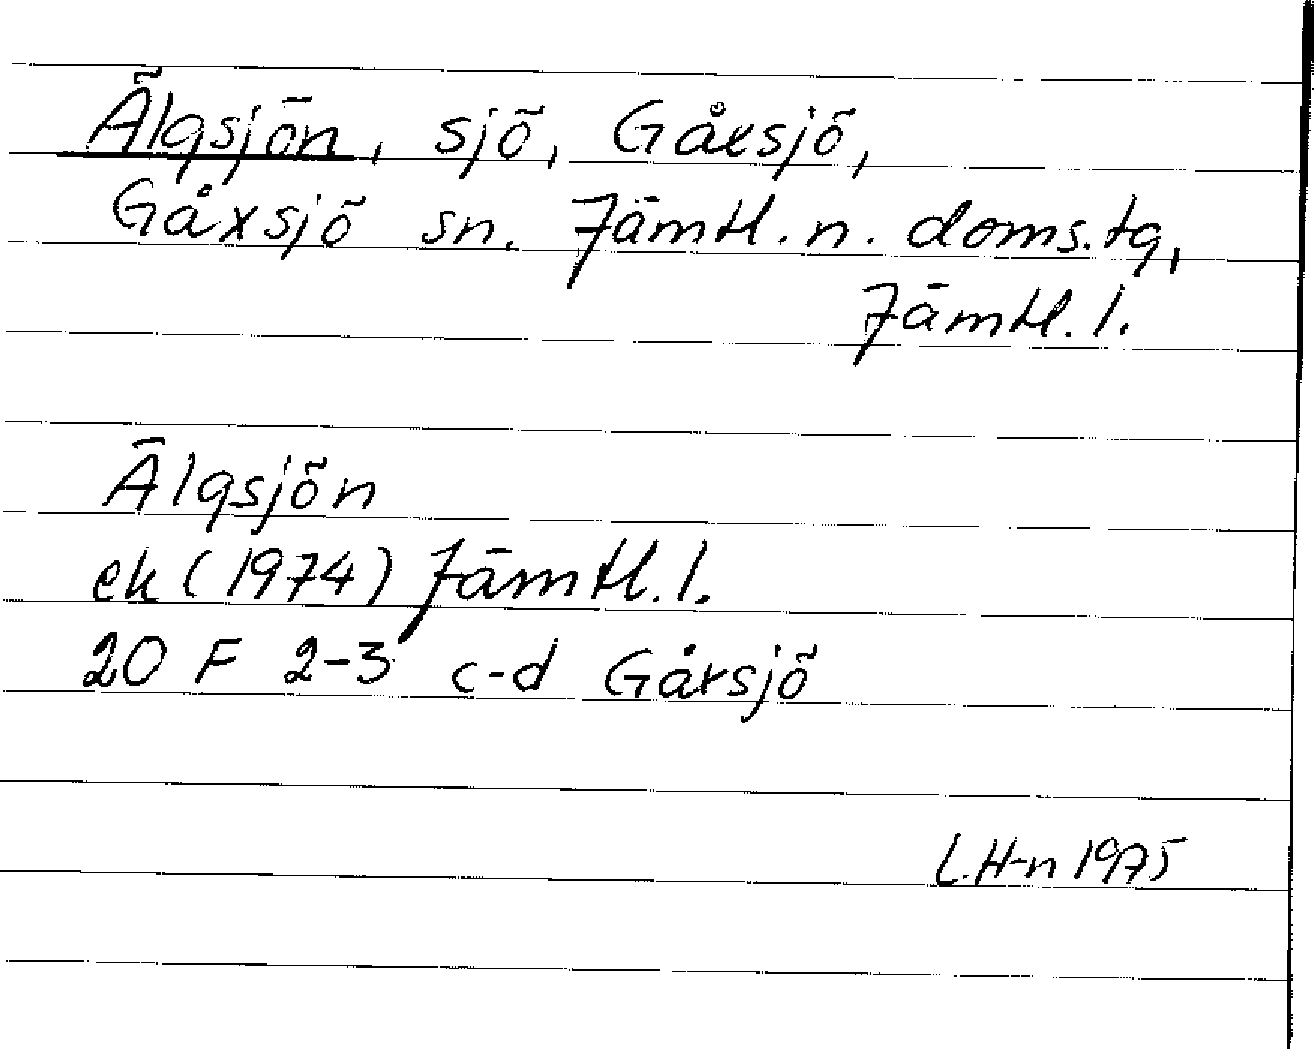 Älgsjön, sjö, Gåxsjö,
Gåxsjö sn. Jämtl. n. doms.tg,
Jämtl. l.
Älgsjön
ek (1974) Jämtl. l.
20 F 2-3 c-d Gåxsjö
L.H-n 1975